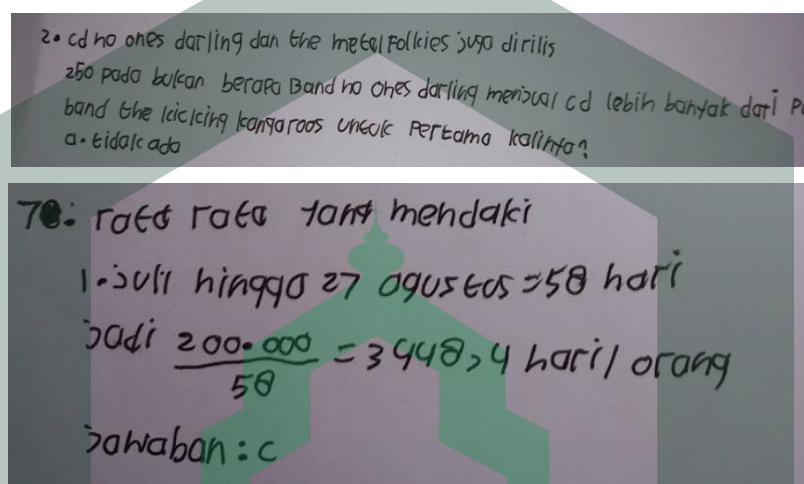 2. cd no ones darling dan the metal Folkies juga dirilis
250 pada bulkan berapa Band no ones darling menjual cd lebih banyak dari
band the kicking kangaroos untuk Pertama kalinta?
a. tidak ada
78: rata rata yang mendaki
1. juli hingga 27 agustus = 58 hari
jadi 200.000 / 58 = 3448,4 hari/orang
jawaban : c